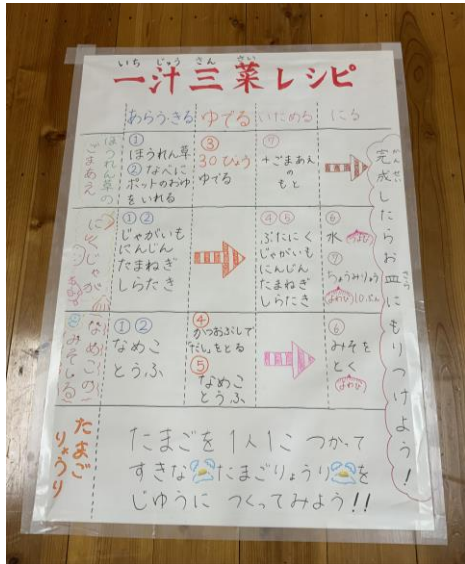 いち じゅう さん さい
一汁三菜レシピ
あらう・きる ゆでる いためる にる
ほうれん草の
ごまあえ
①
ほうれん草
②なべに
ポットのおゆ
をいれる
③
30びょう
ゆでる
⑦
+ごまあえ
の
もと
にくじゃが
①②
じゃがいも
にんじん
たまねぎ
しらたき
④⑤
ぶたにく
じゃがいも
にんじん
たまねぎ
しらたき
⑥
水
⑦
ちょうみりょう
よわび10ぷん
なめこの
みそしる
①②
なめこ
とうふ
④
かつおぶしで
だしをとる
⑤
なめこ
とうふ
⑥
みそを
とく
よわび
たまご
りょうり
たまごを1人1こつかって
すきなたまごりょうりを
じゆうにつくってみよう!!
かんせい
完成したらお皿にもりつけよう!
さら